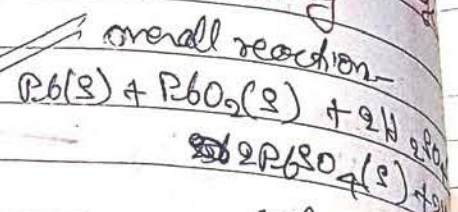 overall reaction-
Pb(s) + PbO2(s) + 2H2SO4
2PbSO4(s) + 2H